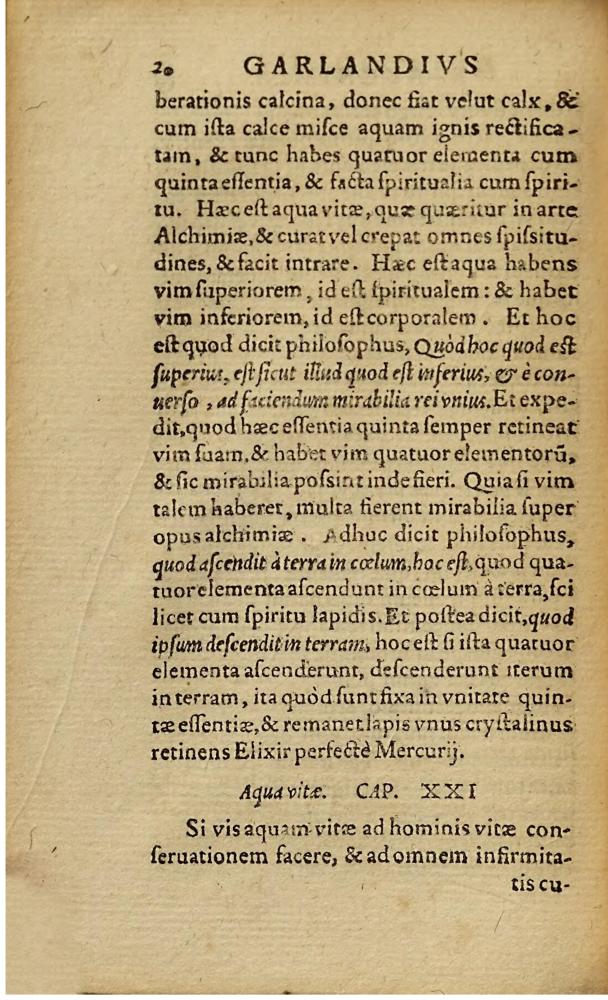 20 GARLANDIVS
berationis calcina, donec fiat velut calx, &
cum iſta calce miſce aquam ignis rectifica-
tam, & tunc habes quatuor elementa cum
quinta eſſentia, & facta ſpiritualia cum ſpiri-
tu. Hæc eſt aqua vitæ, quæ quæritur in arte
Alchimiæ, & curat vel crepat omnes ſpiſsitu-
dines, & facit intrare. Hæc eſt aqua habens
vim ſuperiorem, id eſt ſpiritualem: & habet
vim inferiorem, id eſt corporalem. Et hoc
eſt quod dicit philoſophus, Quòd hoc quod eſt
ſuperius, eſt ſicut illud quod eſt inferius, & è con-
uerſo, ad faciendum mirabilia rei vnius. Et expe-
dit, quod hæc eſſentia quinta ſemper retineat
vim ſuam, & habet vim quatuor elementorũ,
& ſic mirabilia poſsint inde fieri. Quia ſi vim
talem haberet, multa fierent mirabilia ſuper
opus alchimiæ. Adhuc dicit philoſophus,
quod aſcendit à terra in cœlum, hoc eſt, quod qua-
tuor elementa aſcendunt in cœlum à terra, ſci
licet cum ſpiritu lapidis. Et poſtea dicit, quod
ipſum deſcendit in terram, hoc eſt ſi iſta quatuor
elementa aſcenderunt, deſcenderunt iterum
in terram, ita quòd ſunt fixa in vnitate quin-
tæ eſſentiæ, & remanet lapis vnus cryſtalinus
retinens Elixir perfectè Mercurij.
Aqua vitæ. CAP. XXI
Si vis aquam vitæ ad hominis vitæ con-
ſeruationem facere, & ad omnem infirmita-
tis cu-